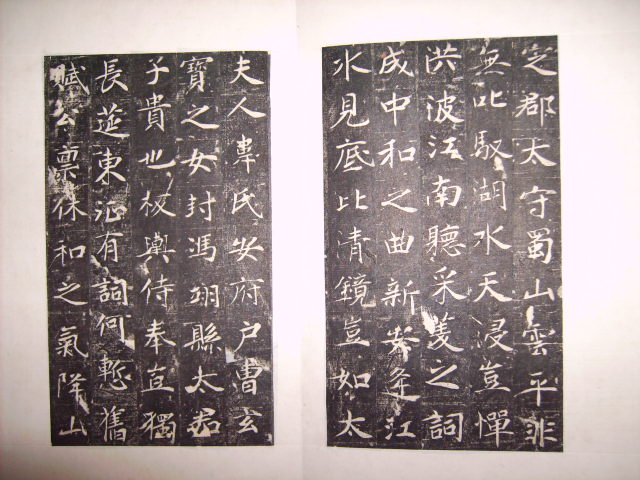 定郡太守蜀山雲平非
無叱馭湖水天浸豈憚
洪波江南聽采菱之詞
成中和之曲新江
水見底比清鏡豈如太
夫人韋氏安府户曹玄
寶之女封馮翊縣太君
子貴也板輿侍奉豈獨
長筵東征有詞何慙舊
賦公禀休和之氣降山